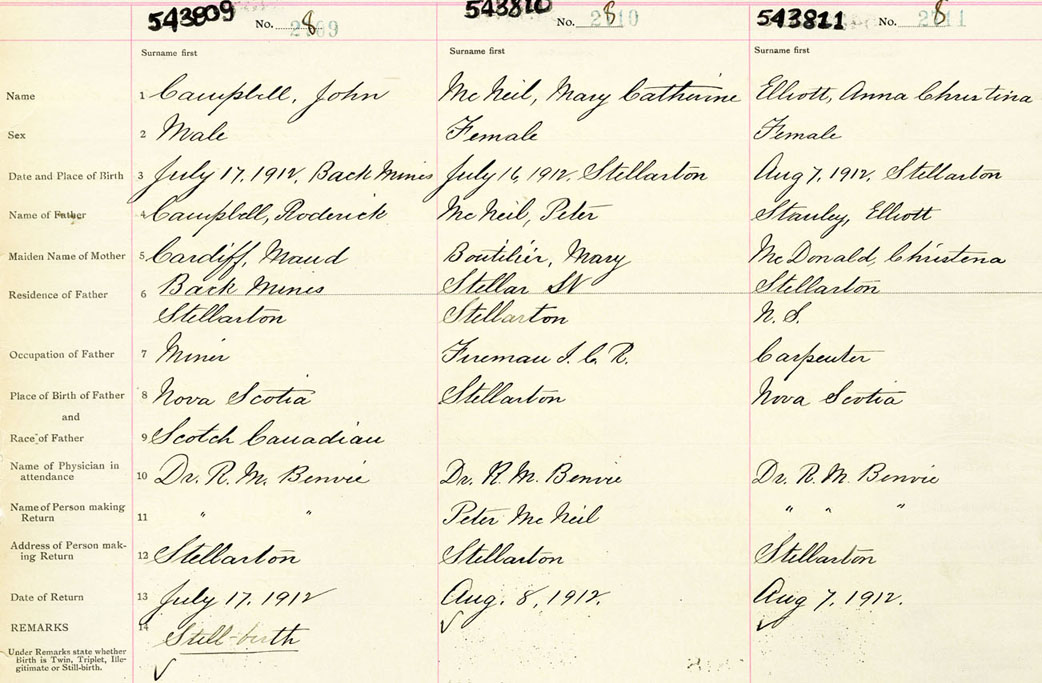 543809 No. 8 2709 543810 No. 8 2710 543811 No. 8 2711
Surname first Surname first Surname first
Name 1 Campbell, John Mc Neil, Mary Catherine Elliott, Anna Christina
Sex 2 Male Female Female
Date and Place of Birth 3 July 17, 1912, Back Mines July 16, 1912, Stellarton Aug 7, 1912, Stellarton
Name of Father 4 Campbell, Roderick Mc Neil, Peter Stanley, Elliott
Maiden Name of Mother 5 Cardiff, Maud Boutilier, Mary Mc Donald, Christena
Residence of Father 6 Back Mines Stellar St Stellarton
Stellarton Stellarton N. S.
Occupation of Father 7 Miner Fireman I. C. R. Carpenter
Place of Birth of Father 8 Nova Scotia Stellarton Nova Scotia
and
Race of Father 9 Scotch Canadian
Name of Physician in
attendance 10 Dr. R. M. Benvie Dr. R. M. Benvie Dr. R. M. Benvie
Name of Person making
Return 11 " " Peter Mc Neil " " "
Address of Person mak-
ing Return 12 Stellarton Stellarton Stellarton
Date of Return 13 July 17, 1912 Aug. 8, 1912. Aug 7, 1912.
REMARKS 14 Still-birth
Under Remarks state whether
Birth is Twin, Triplet, Ille-
gitimate or Still-birth.